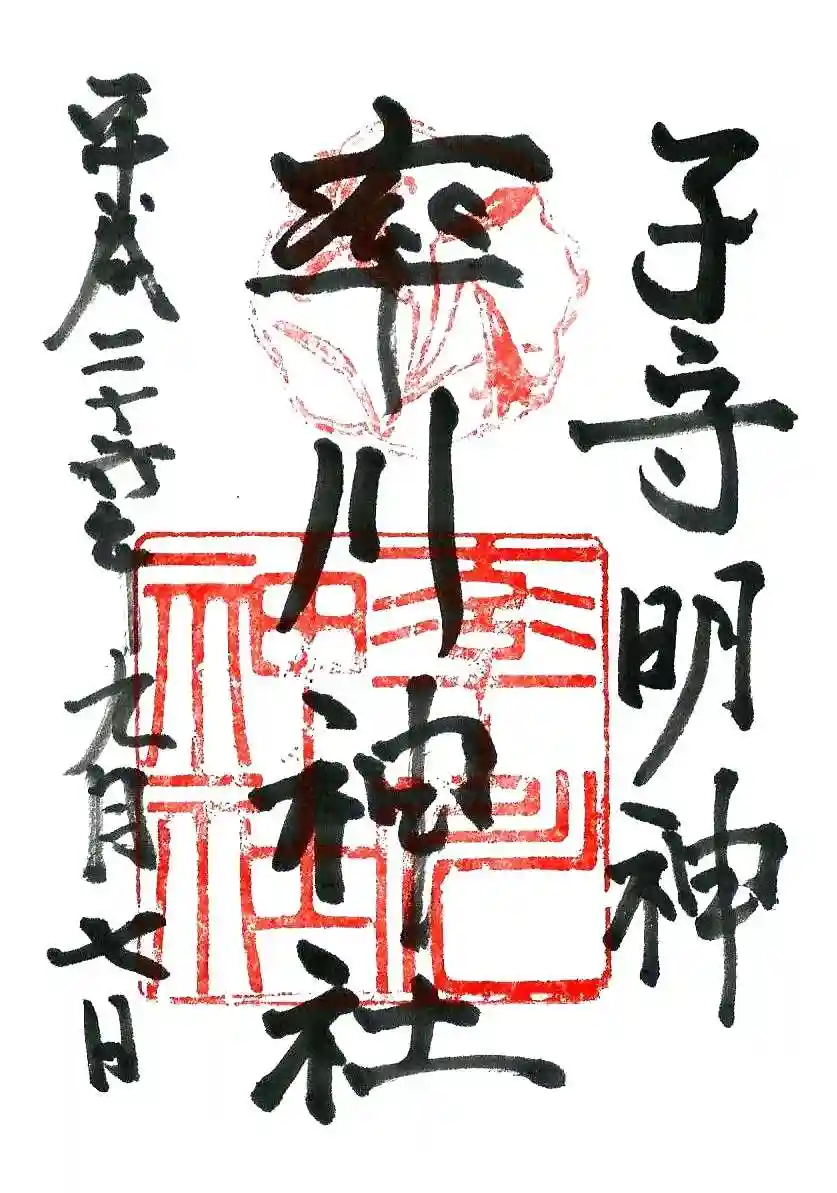 子守明神
率川神社
平成二十六年九月七日